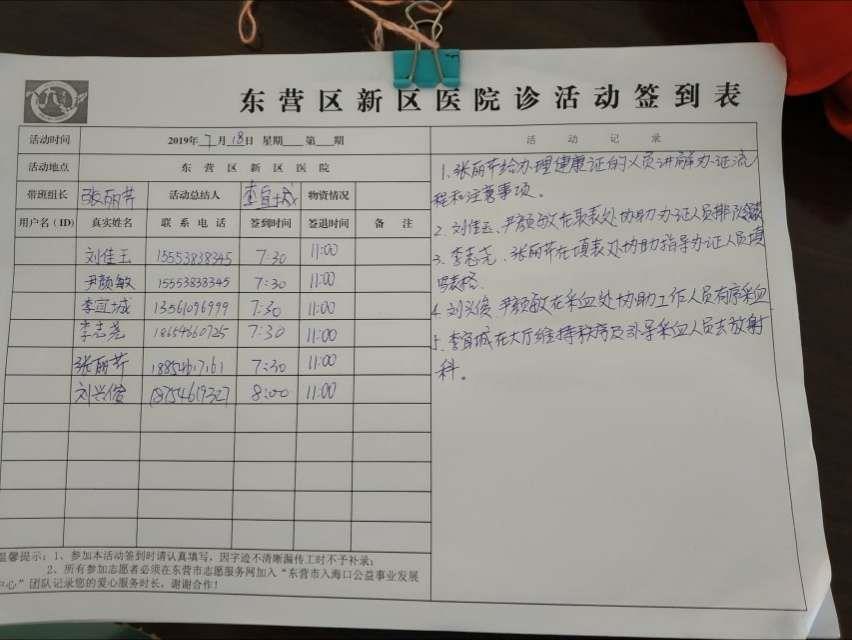 东营区新区医院诊活动签到表
活动时间 2019年7月18日 星期 第 期 活动记录
活动地点 东营区新区医院
带班组长 张丽芹 活动总结人 李宜城 物资情况
用户名(ID) 真实姓名 联系电话 签到时间 签退时间 备注
刘佳玉 15553838345 7:30 11:00
尹颜敏 15553838345 7:30 11:00
李宜城 13561096999 7:30 11:00
李志尧 18654660725 7:30 11:00
张丽芹 18854617161 7:30 11:00
刘兴俊 18754619327 8:00 11:00
1.张丽芹给办理健康证的人员讲解办证流
程和注意事项。
2.刘佳玉、尹颜敏在取表处协助办证人员排
3.李志尧、张丽芹在填表处协助指导办证人员填
写表格.
4.刘兴俊、尹颜敏在采血处协助工作人员有序采血
5.李宜城在大厅维持秩序及引导采血人员去放射
科。
温馨提示:1、参加本活动签到时请认真填写,因字迹不清晰漏传工时不予补录;
2、所有参加志愿者必须在东营市志愿服务网加入“东营市入海口公益事业发展
中心”团队记录您的爱心服务时长,谢谢合作!